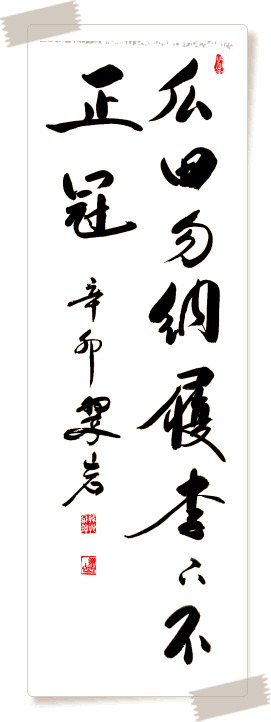 瓜田勿納履李下不
正冠
辛卯翠岩